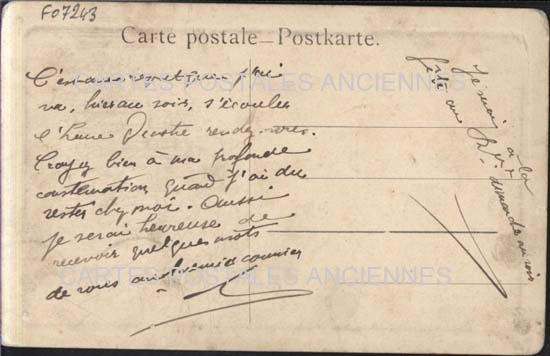 F07243
Carte postale — Postkarte.
CARTES POSTALES ANCIENNES
C'est avec regret que j'ai
vu, hier au soir, s'écouler
l'heure de votre rendez-vous.
Croyez bien à ma profonde
consternation quand j'ai dû
rester chez moi. Aussi
je serai heureuse de
recevoir quelques mots
de vous au premier courrier
CARTES POSTALES ANCIENNES
Je serai à la
fête au
dimanche au soir